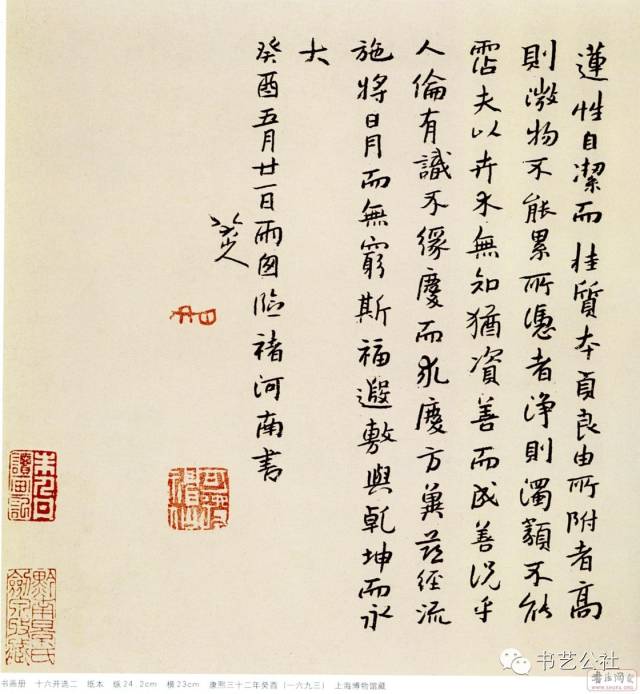 蓮性自潔而桂質本貞良由所附者高
則微物不能累所憑者淨則濁類不能
霑夫以卉木無知猶資善而成善況乎
人倫有識不緣慶而求慶方冀茲經流
施將日月而無窮斯福遐敷與乾坤而永
大
癸酉五月廿一日雨囱臨褚河南書
八大山人
可得神仙
黔南景氏
书画册 十六开选二 纸本 纵24.2cm 横23cm 康熙三十二年癸酉（一六九三） 上海博物馆藏
书艺公社